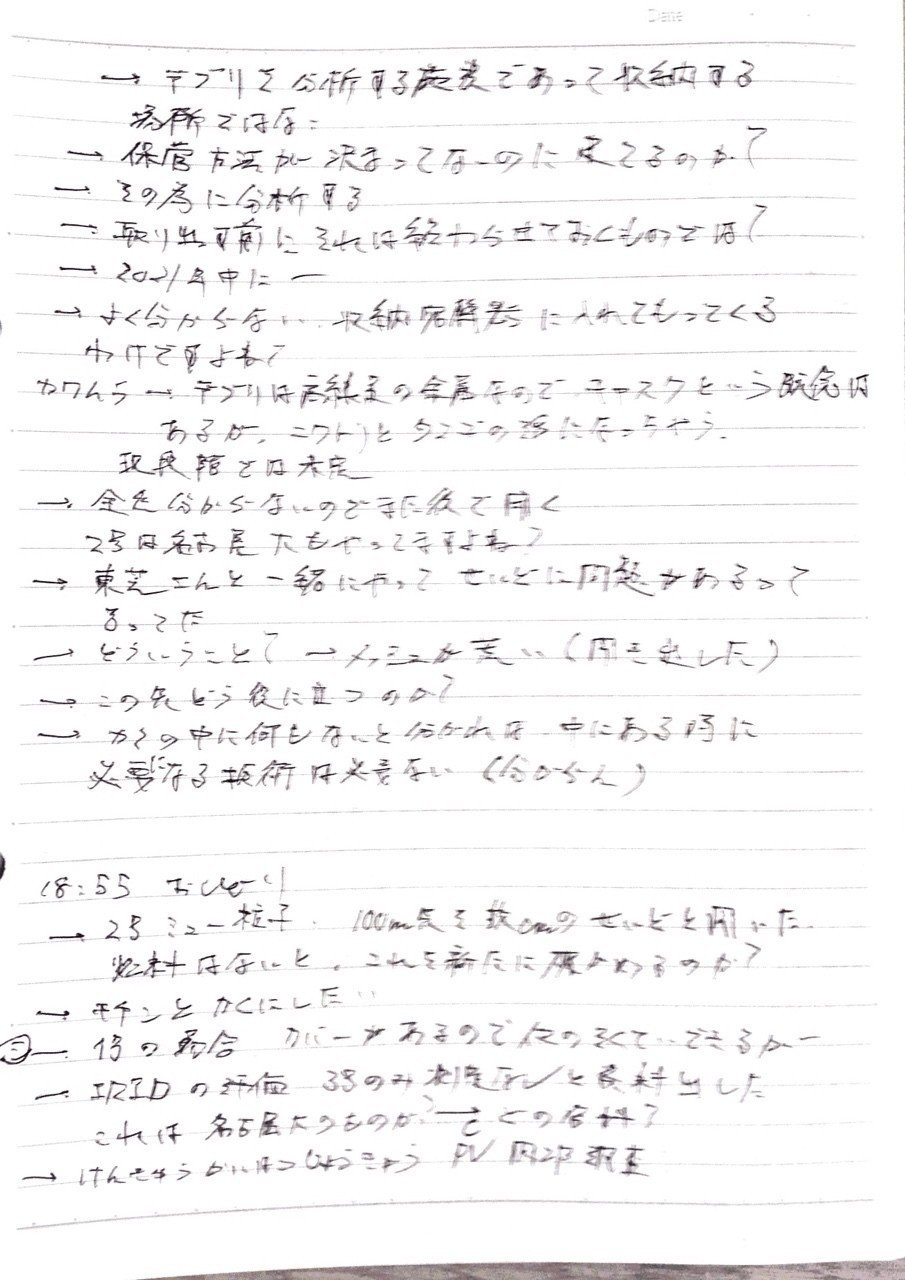 Date
→ デブリを分析する施設であって収納する
場所ではない
→ 保管方法が決まってないのに建てるのか?
→ その為に分析する
→ 取り出す前にそれは終わらせておくものでは?
→ 2021年中に ー
→ よく分からない 収納容器に入れてもってくる
わけですよね?
カワムラ → デブリは 金属なので という 概念は
あるが、ニワトリとタマゴの話になっちゃう。
現段階では未定
→ 全く分からないのでまた後で聞く
2号は名古屋大もやってますよね?
→ 東芝さんと一緒にやって せいどに問題があるって
言ってた
→ どういうこと? → メッシュが荒い (聞き出した)
→ この先どう役に立つのか?
→ カマの中に何もないと分かれば 中にある時に
必要になる技術は必要ない (分からん)
18:55 おしどり
→ 2号ミュー粒子、100m 数cmのせいどと聞いた
燃料はないと。これを新たに のか?
→ キチンとかくにんしたい
→ 1号の場合 カバーがあるので できるか ー
→ IRIDの評価 3号のみ と資料出した
これは名古屋大のものか? → どの資料?
→ けんきゅうかいはつじょうきょう